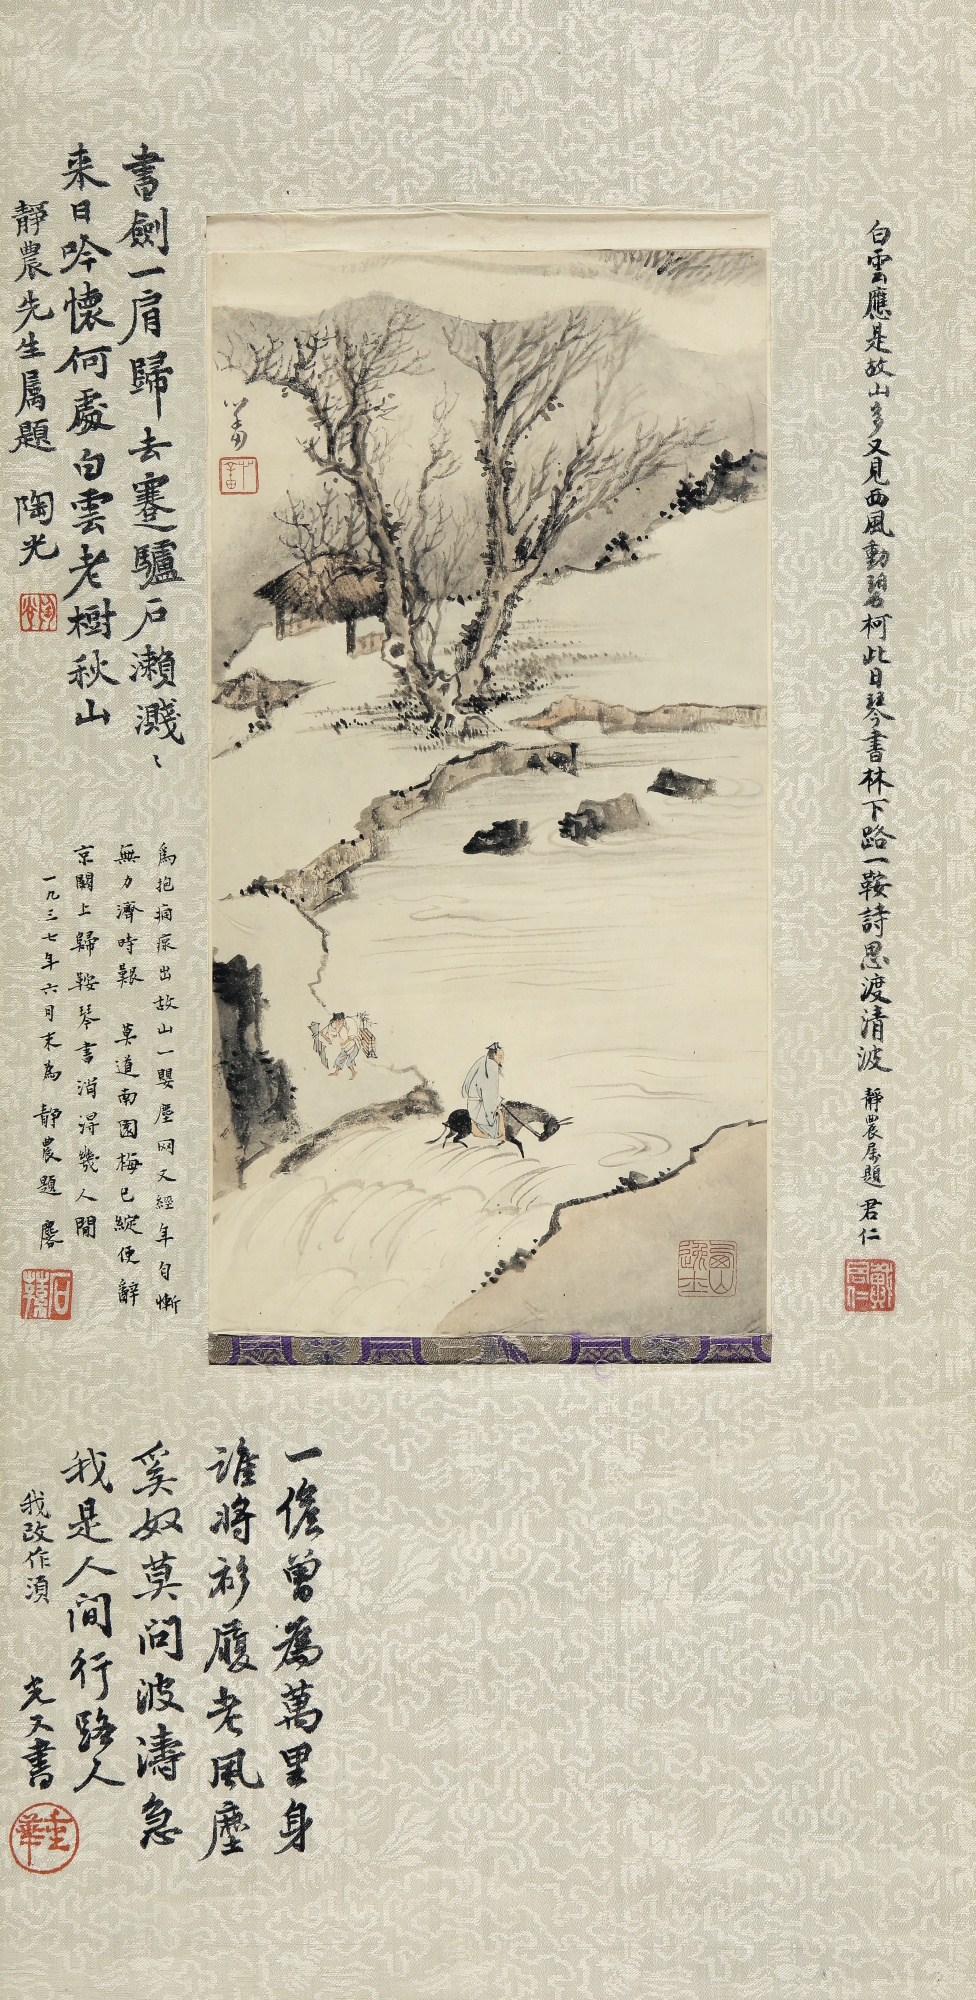 白雲應是故山多又見西風動碧柯此日琴書林下路一鞍詩思渡清波
靜農屬題 君仁
戴君仁
書劍一肩歸去蹇驢戶瀨濺〻
来日吟懷何處白雲老樹秋山
靜農先生屬題 陶光
陶光
為抱痌瘝出故山一嬰塵网又經年自慚
無力濟時艱 莫道南園梅已綻便辭
京闕上歸鞍琴書消得幾人閒
一九三七年六月末為靜農題
一儋曾為萬里身
誰將衫履老風塵
奚奴莫问波濤急
我是人间行路人
我改作須
光又書
重華